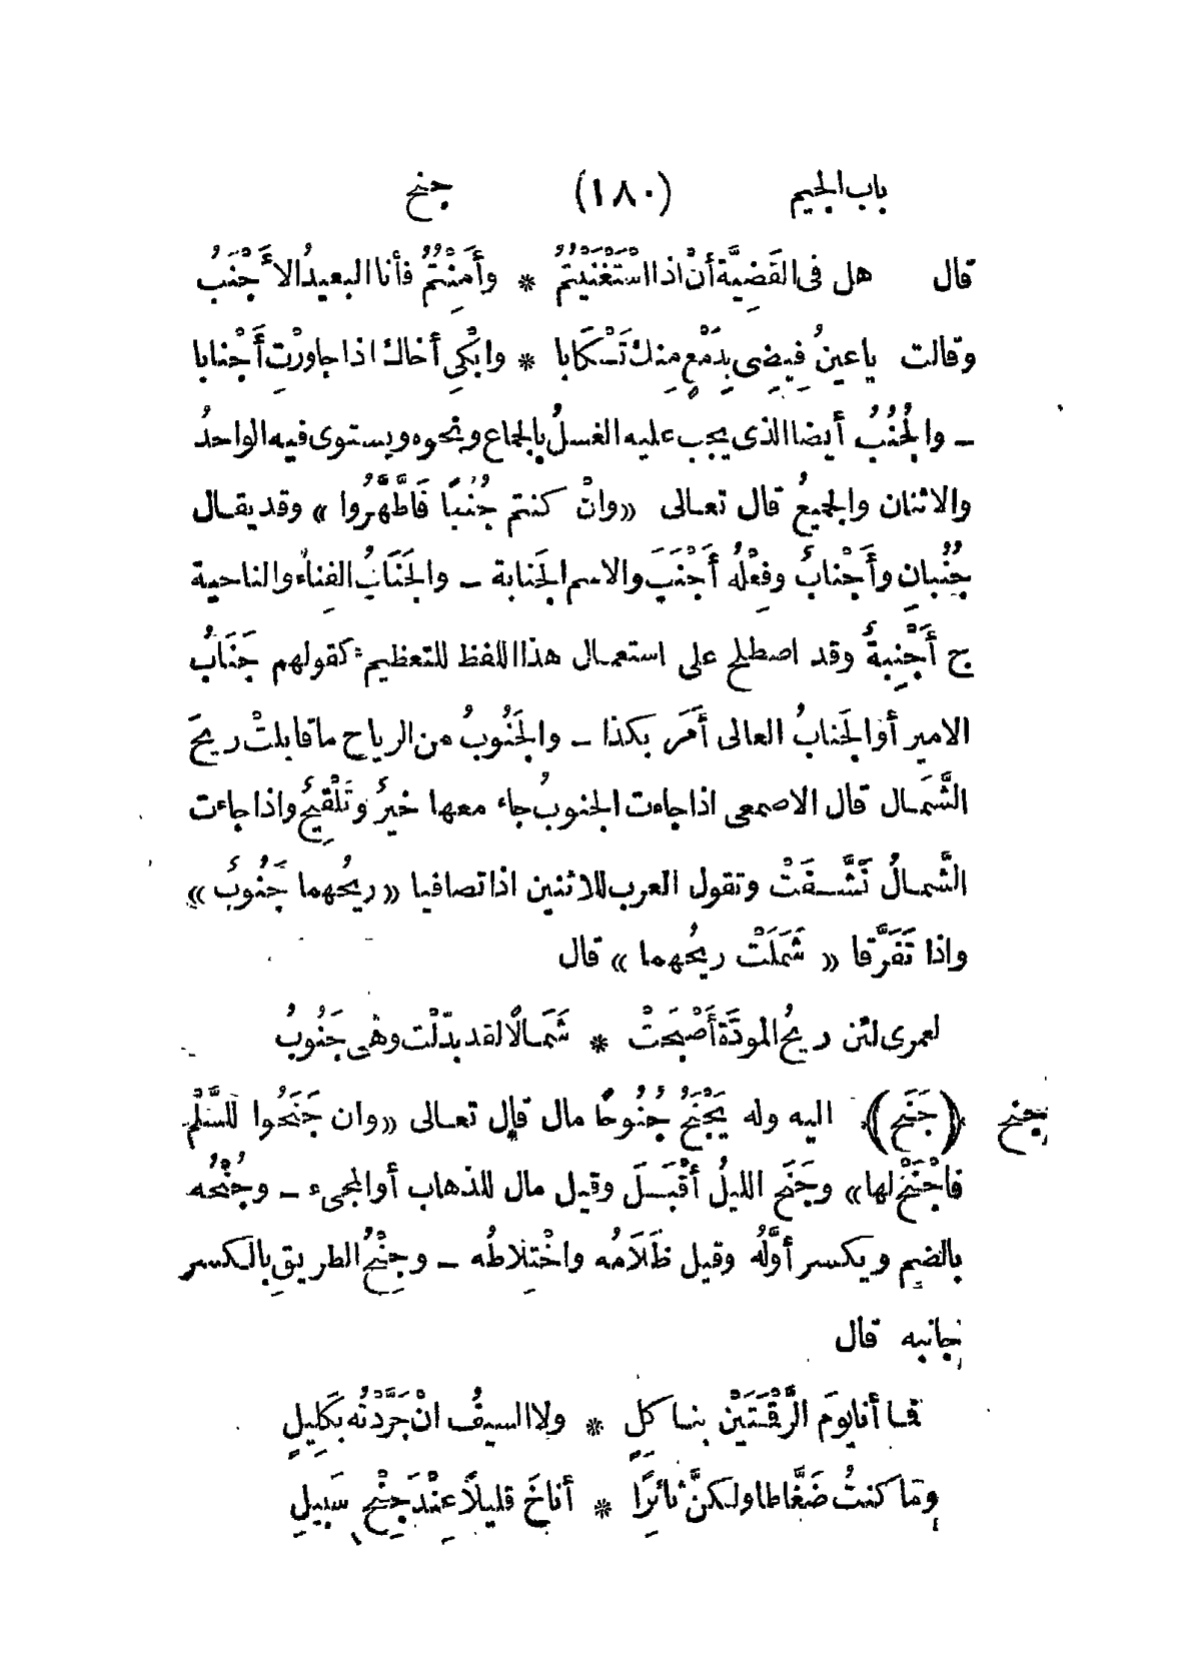 باب الجيم (١٨٠) جنح
قال هل فى القَضِيَّة أنْ اذا اسْتَغْنَيْتُمُ * وأَمِنْتُمُ فأنا البعيدُ الأَجْنَبُ
وقالت ياعينُ فِيضِى بِدَمْعٍ مِنك تَسْكابا * وابْكِى أخاك اذا جاورْتِ أَجْنابا
ــ والجُنُبُ أيضا الذى يجب عليه الغسلُ بالجماع ونحوه ويستوى فيه الواحدُ
والاثنان والجميعُ قال تعالى «وانْ كنتم جُنُبًا فَاطَّهَّرُوا» وقد يقال
جُنُبانِ وأَجْنابٌ وفِعْلُه أَجْنَبَ والاسم الجَنابة ــ والجَنَابُ الفِناءُ والناحية
ج أَجْنِبةٌ وقد اصطلح على استعمال هذا اللفظ للتعظيم كقولهم جَنَابُ
الامير أو الجَنابُ العالى أَمَر بكذا ــ والجَنُوبُ من الرياح ماقابلتْ ريحَ
الشَّمَال قال الاصمعى اذا جاءت الجنوبُ جاء معها خيرٌ وتَلْقِيحٌ واذا جاءت
الشَّمالُ نَشَّفَتْ وتقول العرب للاثنين اذا تصافيا «ريحُهما جَنُوبٌ»
واذا تَفَرَّقا «شَمَلَتْ ريحُهما» قال
لعمرى لئن ريحُ المودَّة أَصْبَحَتْ * شَمَالًا لقد بدّلْت وهْى جَنُوبُ
جنح (جَنَح) اليه وله يَجْنَحُ جُنُوحًا مال قال تعالى «وان جَنَحُوا للسَّلْمِ
فاجْنَحْ لها» وجَنَح الليلُ أَقْبَلَ وقيل مال للذهاب أوالمجىء ــ وجُنْحُه
بالضم ويكسر أوَّلُه وقيل ظَلَامُه واخْتِلاطُه ــ وجِنْحُ الطريقِ بالكسر
جانبه قال
فما أنا يومَ الرَّقْمَتَيْن بناكلٍ * ولا السيفُ انْ جَرَّدْتُه بكَلِيلِ
وما كنتُ ضَغَّاطا ولكنَّ ثائرًا * أناخَ قليلاً عِنْدَ جِنْحِ سَبيلِ